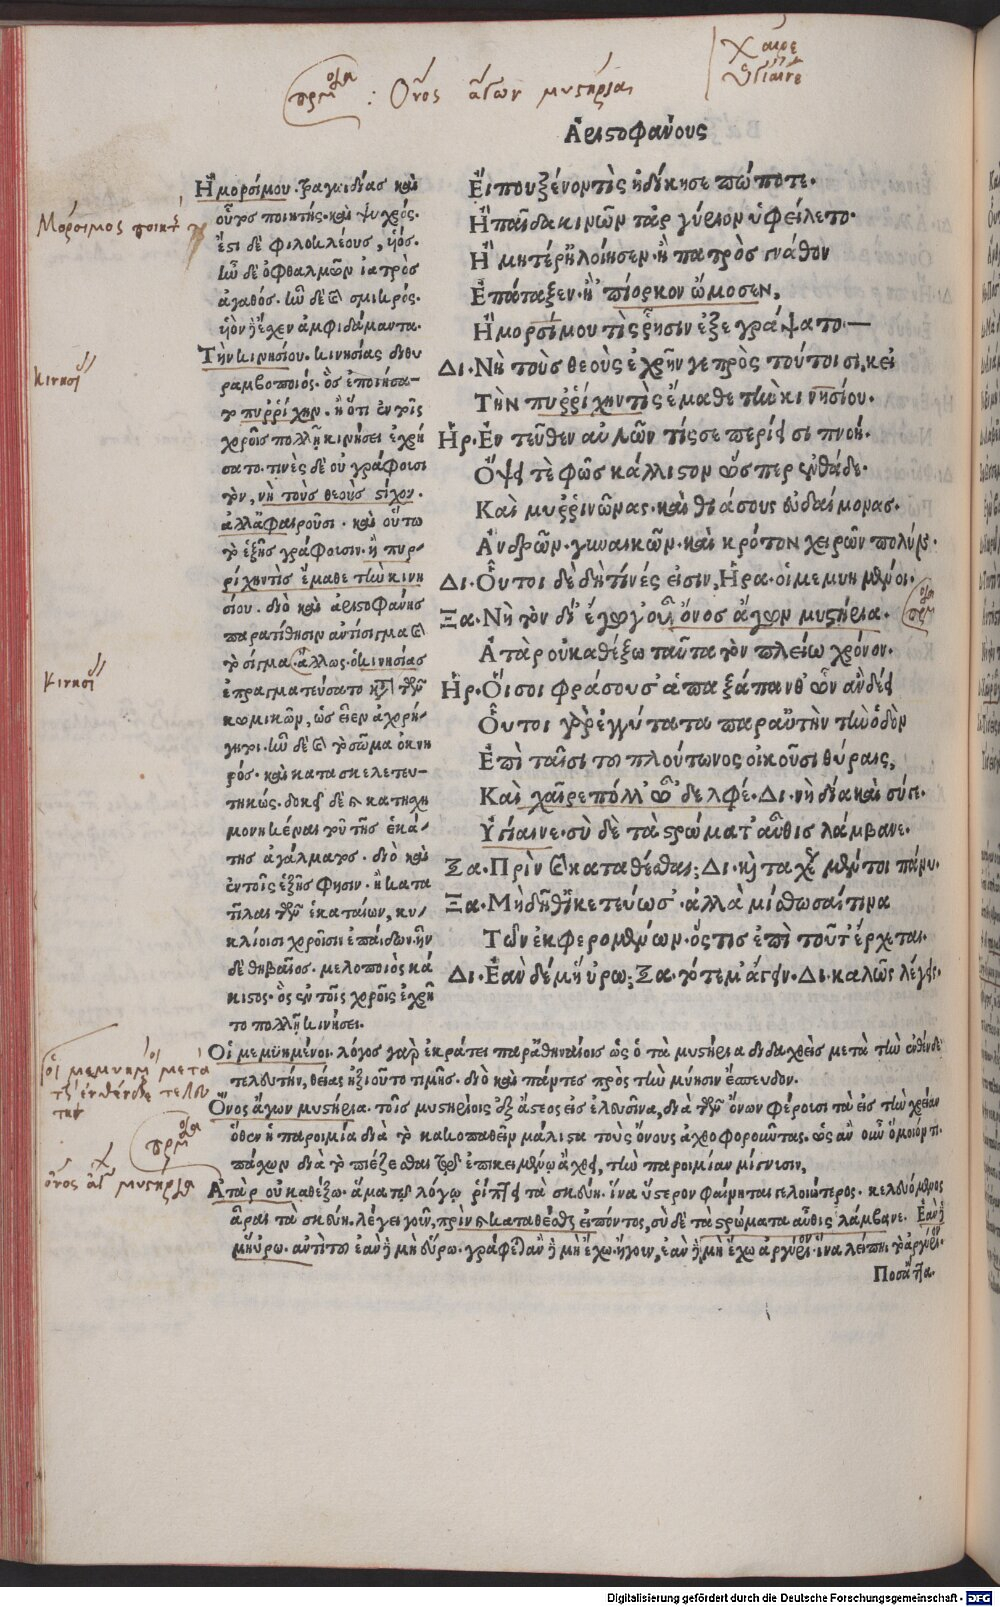 Χαῖρε
ὑγίαινε
παροιμία : Ὄνος ἄγων μυστήρια
Ἀριστοφάνους
Εἴ που ξένον τὶς ἠδίκησε πώποτε.
Ἢ παῖδα κινῶν τἀργύριον ὑφείλετο.
Ἢ μητέρ' ἠλοίησεν. ἢ πατρὸς γνάθον
Ἐπάταξεν. ἢ 'πίορκον ὤμοσεν,
Ἢ μορσίμου τὶς ῥῆσιν ἐξεγράψατο.—
Δι. Νὴ τοὺς θεοὺς ἐχρῆν γε πρὸς τούτοισι, κεἰ
Τὴν πυῤῥίχην τὶς ἔμαθε τὴν κινησίου.
Ἡρ. Ἐντεῦθεν αὐλῶν τίς σε περίεισι πνοή.
Ὄψει τὲ φῶς κάλλιστον ὥσπερ ἐνθάδε.
Καὶ μυῤῥινῶνας. καὶ θιάσους εὐδαίμονας.
Ἀνδρῶν. γυναικῶν. καὶ κρότον χειρῶν πολύν.
Δι. Οὗτοι δὲ δὴ τίνές εἰσιν, Ἡρα. οἱ μεμυημένοι.
Ξα. Νὴ τὸν δί' ἐγὼ γοῦν ὄνος ἄγων μυστήρια.
παροιμία
Ἀτὰρ οὐ καθέξω ταῦτα τὸν πλείω χρόνον.
Ἡρ. Οἵ σοι φράσουσ' ἁπαξάπανθ' ὧν ἂν δέῃ
Οὗτοι γὰρ ἐγγύτατα παρ' αὐτὴν τὴν ὁδὸν
Ἐπὶ ταῖσι τοῦ πλούτωνος οἰκοῦσι θύραις,
Καὶ χαῖρε πόλλ' ὦ 'δελφέ. Δι. νὴ δία καὶ σύ γε.
Ὑγίαινε. σὺ δὲ τὰ στρώματ' αὖθις λάμβανε.
Ξα. Πρὶν καὶ καταθέσθαι; Δι. καὶ ταχὺ μέντοι πάνυ.
Ξα. Μὴ δῆθ' ἱκετεύω σ'. ἀλλὰ μίσθωσαί τινα
Τῶν ἐκφερομένων. ὅστις ἐπὶ τοῦτ' ἔρχεται.
Δι. Ἐὰν δὲ μὴ εὕρω; Ξα. τότε μ' ἄγειν. Δι. καλῶς λέγεις.
Μόρσιμος ποιητ
Κινησί
Κινησί
Ἢ μορσίμου. τραγωδίας καὶ
οὗτος ποιητής. καὶ ψυχρός.
ἔστι δὲ φιλοκλέους, υἱός.
ἦν δὲ ὀφθαλμῶν ἰατρὸς
ἀγαθός. ἦν δὲ καὶ σμικρός.
υἱὸν εἶχεν ἀμφιδάμαντα.
Τὴν κινησίου. κινησίας διθυ
ραμβοποιός. ὃς ἐποίησε
τὴν πυῤῥίχην. ἢ ὅτι ἐν τοῖς
χοροῖς πολλῇ κινήσει ἐχρή
σατο. τινὲς δὲ οὐ γράφουσι
τὸν, νὴ τοὺς θεοὺς στίχον.
ἀλλ' ἀφαιροῦσι. καὶ οὕτω
τὸ ἑξῆς γράφουσιν. ἢ πυρ-
ρίχην τὶς ἔμαθε τὴν κινη
σίου. διὸ καὶ ἀριστοφάνης
παρατίθησιν ἀντίσιγμα καὶ
τὸ σίγμα. ἄλλως. ὁ κινησίας
ἐπραγματεύσατο κατὰ τῶν
κωμικῶν, ὡς εἶεν ἀχορή-
γητοι. ἦν δὲ καὶ τὸ σῶμα ὀκνη
ρός. καὶ κατασκελετευ-
τηκώς. δοκεῖ δὲ καὶ κατηχη
μονηκέναι τοῦ τῆς ἑκά-
της ἀγάλματος. διὸ καὶ
ἐν τοῖς ἑξῆς φησιν. ἢ κατα
τιλᾶι τῶν ἑκαταίων, κυ-
κλίοισι χοροῖσιν ἐπάιδων. ἦν
δὲ θηβαῖος. μελοποιὸς κά
κιστος. ὃς ἐν τοῖς χοροῖς ἐχρῆ
το πολλῇ κινήσει.
οἱ μεμυημ μετὰ
τὴν ἐνθένδε τελευ
τήν
παροιμία
ὄνος ἄγων μυστήρια
Οἱ μεμυημένοι. λόγος γὰρ ἐκράτει παρ' ἀθηναίοις ὡς ὁ τὰ μυστήρια διδαχθεὶς μετὰ τὴν ἐνθένδε
τελευτὴν, θείας ἠξιοῦτο τιμῆς. διὸ καὶ πάντες πρὸς τὴν μύησιν ἔσπευδον.
Ὄνος ἄγων μυστήρια. τοῖς μυστηρίοις ἐξ ἄστεος εἰς ἐλευσῖνα, διὰ τῶν ὄνων φέρουσι τὰ εἰς τὴν χρείαν
ὅθεν ἡ παροιμία διὰ τὸ κακοπαθεῖν μάλιστα τοὺς ὄνους ἀχθοφοροῦντας. ὡς ἂν οὖν ὅμοιόν τι
πάσχων διὰ τὸ πιέζεσθαι τῷ ἐπικειμένῳ ἄχθει, τὴν παροιμίαν μίγνυσιν,
Ἀτὰρ οὐ καθέξω. ἅμα τῷ λόγῳ ῥίπτει τὰ σκεύη. ἵνα ὕστερον φαίνηται γελοιώτερος. κελευόμενος
ἆραι τὰ σκεύη. λέγει γοῦν, πρὶν καὶ καταθέσθαι εἰπόντος, σὺ δὲ τὰ στρώματα αὖθις λάμβανε. Ἐὰν δὲ
μὴ εὕρω. αὐτὶ τοῦ ἐὰν δὲ μὴ εὕρω. γράφεται ἂν δὲ μὴ ἔχω. ἤγουν, ἐὰν δὲ μὴ ἔχω ἀργύριον. ἵνα λείπηι τὸ ἀργύριον.
Ποσάττα.
Digitalisierung gefördert durch die Deutsche Forschungsgemeinschaft - DFG